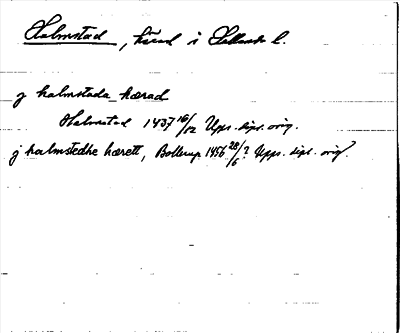 Halmstad, härad i Hallands l.
j halmstada hærad
Halmstad 1437 16/12 Upps. dipl. orig.
j halmstedhe hærett, Bollerup 1456 28/6? Upps. dipl. orig.